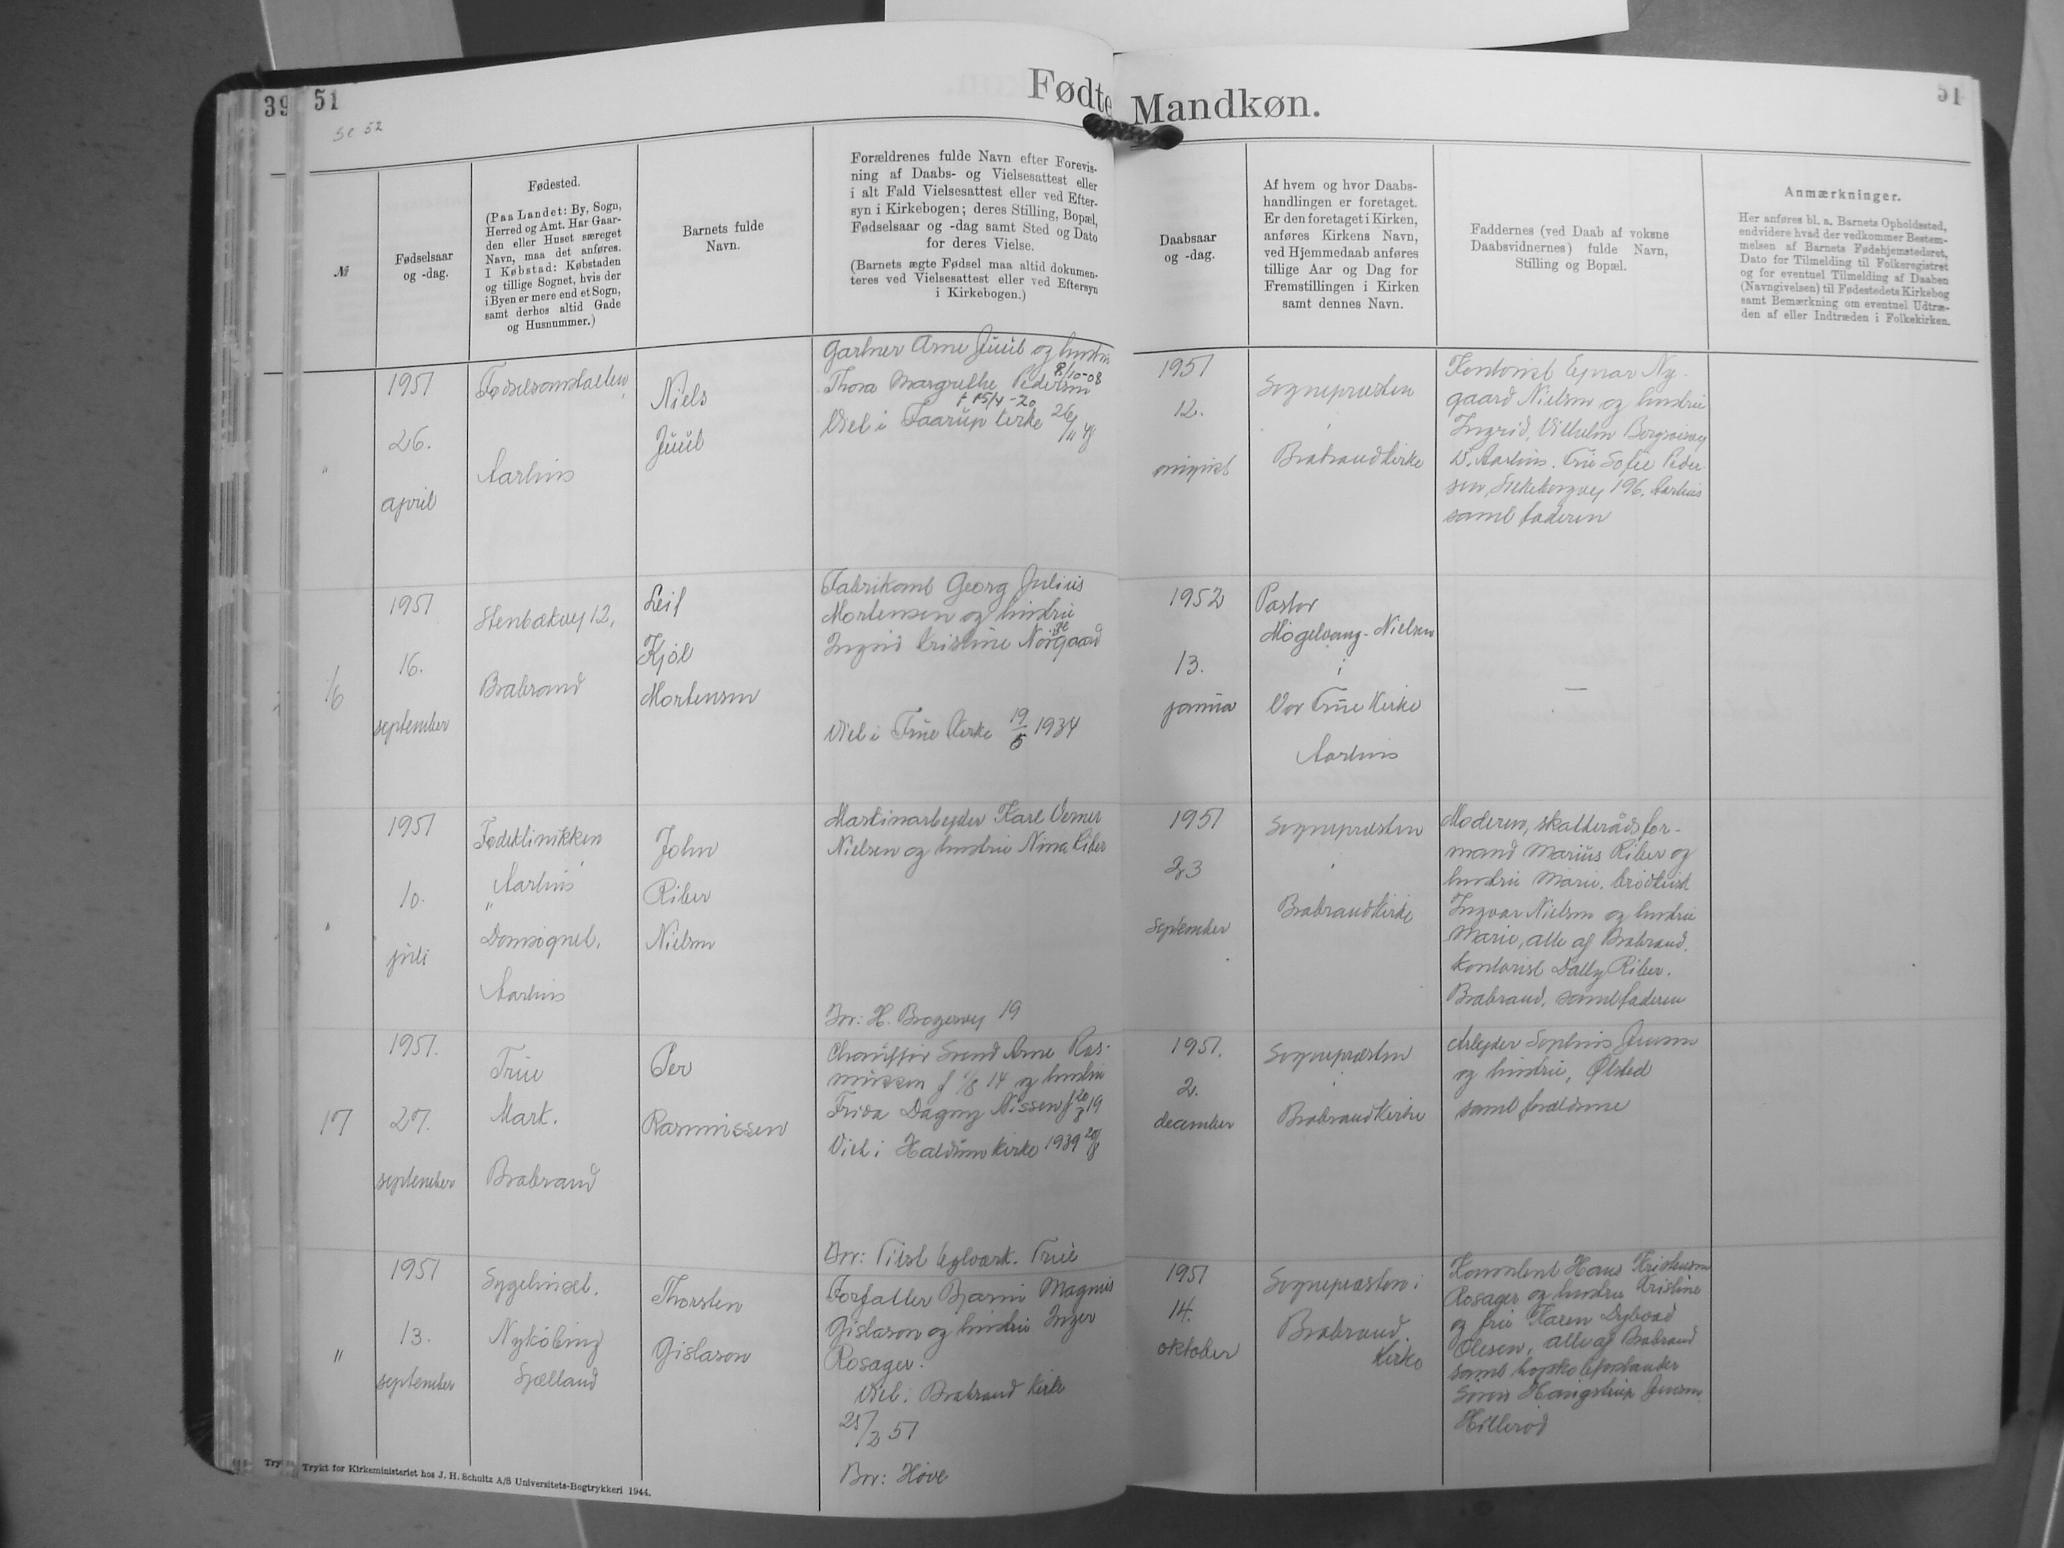 39
51
Fødte
Mandkøn.
51
se 52
№
Fødselsaar
og -dag.
Fødested.
(Paa Landet: By, Sogn,
Herred og Amt. Har Gaar-
den eller Huset særeget
Navn, maa det anføres.
I Købstad: Købstaden
og tillige Sognet, hvis der
i Byen er mere end et Sogn,
samt derhos altid Gade
og Husnummer.)
Barnets fulde
Navn.
Forældrenes fulde Navn efter Forevis-
ning af Daabs- og Vielsesattest eller
i alt Fald Vielsesattest eller ved Efter-
syn i Kirkebogen; deres Stilling, Bopæl,
Fødselsaar og -dag samt Sted og Dato
for deres Vielse.
(Barnets ægte Fødsel maa altid dokumen-
teres ved Vielsesattest eller ved Eftersyn
i Kirkebogen.)
Daabsaar
og -dag.
Af hvem og hvor Daabs-
handlingen er foretaget.
Er den foretaget i Kirken,
anføres Kirkens Navn,
ved Hjemmedaab anføres
tillige Aar og Dag for
Fremstillingen i Kirken
samt dennes Navn.
Faddernes (ved Daab af voksne
Daabsvidnernes) fulde Navn,
Stilling og Bopæl.
Anmærkninger.
Her anføres bl. a. Barnets Opholdssted,
endvidere hvad der vedkommer Bestem-
melsen af Barnets Fødehjemstedsret,
Dato for Tilmelding til Folkeregistret
og for eventuel Tilmelding af Daaben
(Navngivelsen) til Fødestedets Kirkebog
samt Bemærkning om eventuel Udtræ-
den af eller Indtræden i Folkekirken.
"
1951
26.
april
Fødselsanstalten,
Aarhus
Niels
Juul
Gartner Arne Juul og hustru
8/10-08
Thora Margrethe Pedersen
f 15/4-20
Viet i Taarup kirke 26/11 48
1951
12.
august
Sognepræsten
i
Brabrand kirke
Kontorist Ejnar Ny-
gaard Nielsen og hustru
Ingrid, Vilhelm Bergsøesvej
Aarhus. Fru Sofie Peder-
sen, Silkeborgvej 196, Aarhus
samt faderen
16
1951
16.
september
Stenbækvej 12,
Brabrand
Leif
Kjøl
Mortensen
Fabrikant Georg Julius
Mortensen og hustru
Ingrid Kristine Nørgaard
Viet i True Kirke 19/5 1934
1952
13.
janua
Pastor
Møgelvang-Nielsen
i
Vor Frue Kirke
Aarhus
—
"
1951
10.
juli
Fødeklinikken
Aarhus
"
Domsognet,
Aarhus
John
Riber
Nielsen
Maskinarbejder Karl Verner
Nielsen og hustru Nina Riber
Br: H. Brogesvej 19
1951
23
september
Sognepræsten
i
Brabrand kirke
Moderen, skatterådsfor-
mand Marius Riber og
hustru Marie.
Ingvar Nielsen og hustru
Marie, alle af Brabrand.
kontorist Dally Riber.
Brabrand, samt faderen
17
1951.
27.
september
True
Mark.
Brabrand
Per
Rasmussen
Chauffør Svend Arne Ras-
mussen f 1/8 14 og hustru
Frida Dagny Nissen f 20/3 19
Viet i Haldum kirke 1939 20/8
Br: Tilst Teglværk. True
1951.
2.
december
Sognepræsten
i
Brabrand Kirke
Arbejder Sophus Jensen
og hustru, Ølsted
samt forældrene
"
1951
13.
september
Sygehuset.
Nykøbing
Sjælland
Thorsten
Gislason
Forfatter Bjarni Magnus
Gislason og hustru Inger
Rosager.
Viet i Brabrand kirke
25/2 51
Br: Hove
1951
14.
oktober
Sognepræsten i
Brabrand
Kirke
Konsulent Hans Kristensen
Rosager og hustru Kristine
og fru Karen
Olesen, alle af Brabrand
samt højskoleforstander
Hillerød
Trykt for Kirkeministeriet hos J. H. Schultz A/S Universitets-Bogtrykkeri 1944.